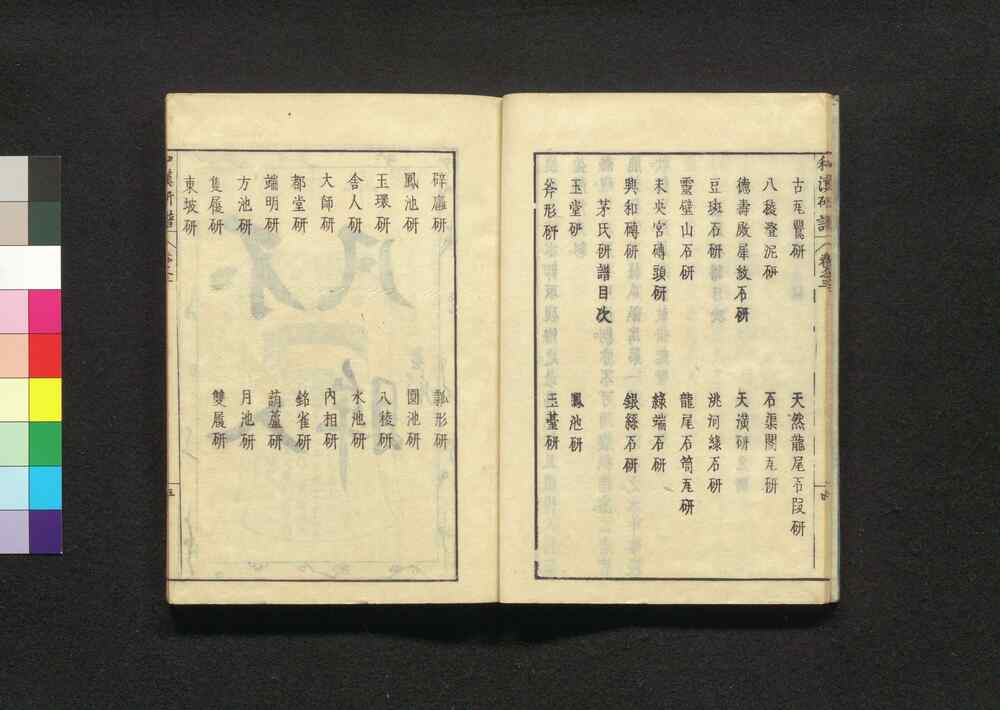 和漢研譜 卷之三
古瓦鸞研
天然龍尾石段研
八稜澄泥研
石渠閣瓦研
德壽殿犀紋石研
天潢研
豆斑石研
洮河綠石研
靈壁山石研
龍尾石筒瓦研
未央宮磚頭研
綠端石研
興和磚研
銀絲石研
茅氏研譜目次
玉堂研
鳳池研
斧形研
玉臺研
辟廱研
瓢形研
鳳池研
圓池研
玉環研
八稜研
舍人研
水池研
大師研
內相研
都堂研
銘雀研
端明研
葫蘆研
方池研
月池研
隻履研
雙履研
東坡研
五